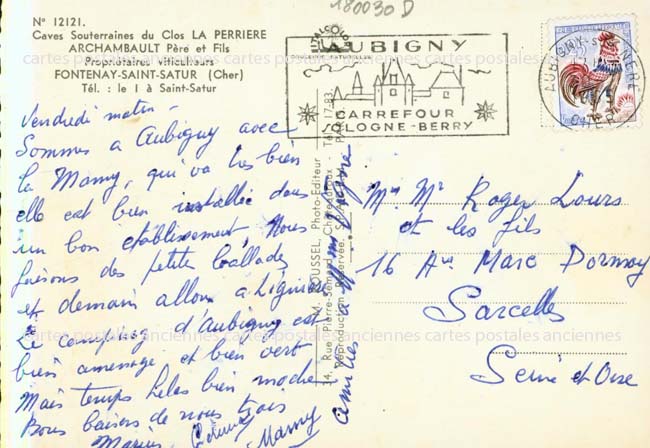 180030 D
N° 12121.
Caves Souterraines du Clos LA PERRIERE
ARCHAMBAULT Père et Fils
Propriétaires Viticulteurs
FONTENAY-SAINT-SATUR (Cher)
Tél. : le 1 à Saint-Satur
AUBIGNY
CARREFOUR
SOLOGNE-BERRY
AUBIGNY-S-NERE
CHER
cartes postales anciennes cartes postales anciennes cartes postales anciennes
Vendredi matin -
Sommes a Aubigny avec
la Mamy, qui va tres bien
elle est bien installée dans
un bon établissement, Nous
faisons des petites ballades
et demain allons a Lignières
Le camping d'Aubigny est
bien amenagé et bien vert
Mais temps hélas bien moche
Bons baisers de nous trois
Mamy
amities a
M. ROUSSEL, Photo-Editeur
14, Rue Pierre-Semard, Châteauroux - Tél. 17-83
Reproduction Réservée.
Mme Mr Roger Lours
et les fils
16 Ave Marc Dormoy
Sarcelles
Seine et Oise
cartes postales anciennes cartes postales anciennes cartes postales anciennes